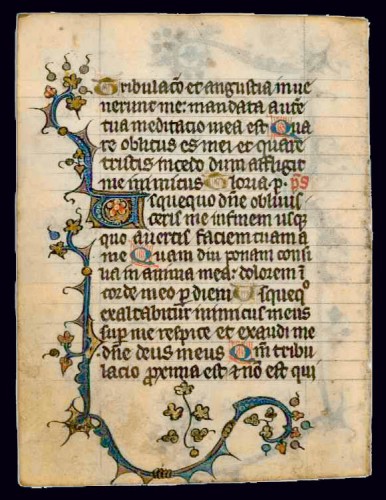 Tribulac̃o et angustia inue
nerunt me: mandata aut̃
tua meditacio mea est Qua
re oblitus es mei et quare
tristis incedo dum affligit
me inimicus Gloria p. ps
Usquequo dñe obliuis
ceris me in finem usq̃
quo auertis faciem tuam a
me Quam diu ponam consi
lia in anima mea: dolorem ĩ
corde meo p diem Usqueqº
exaltabitur inimicus meus
sup me respice et exaudi me
dñe deus meus Qm̃ tribu
lacio proxima est et nõ est qui